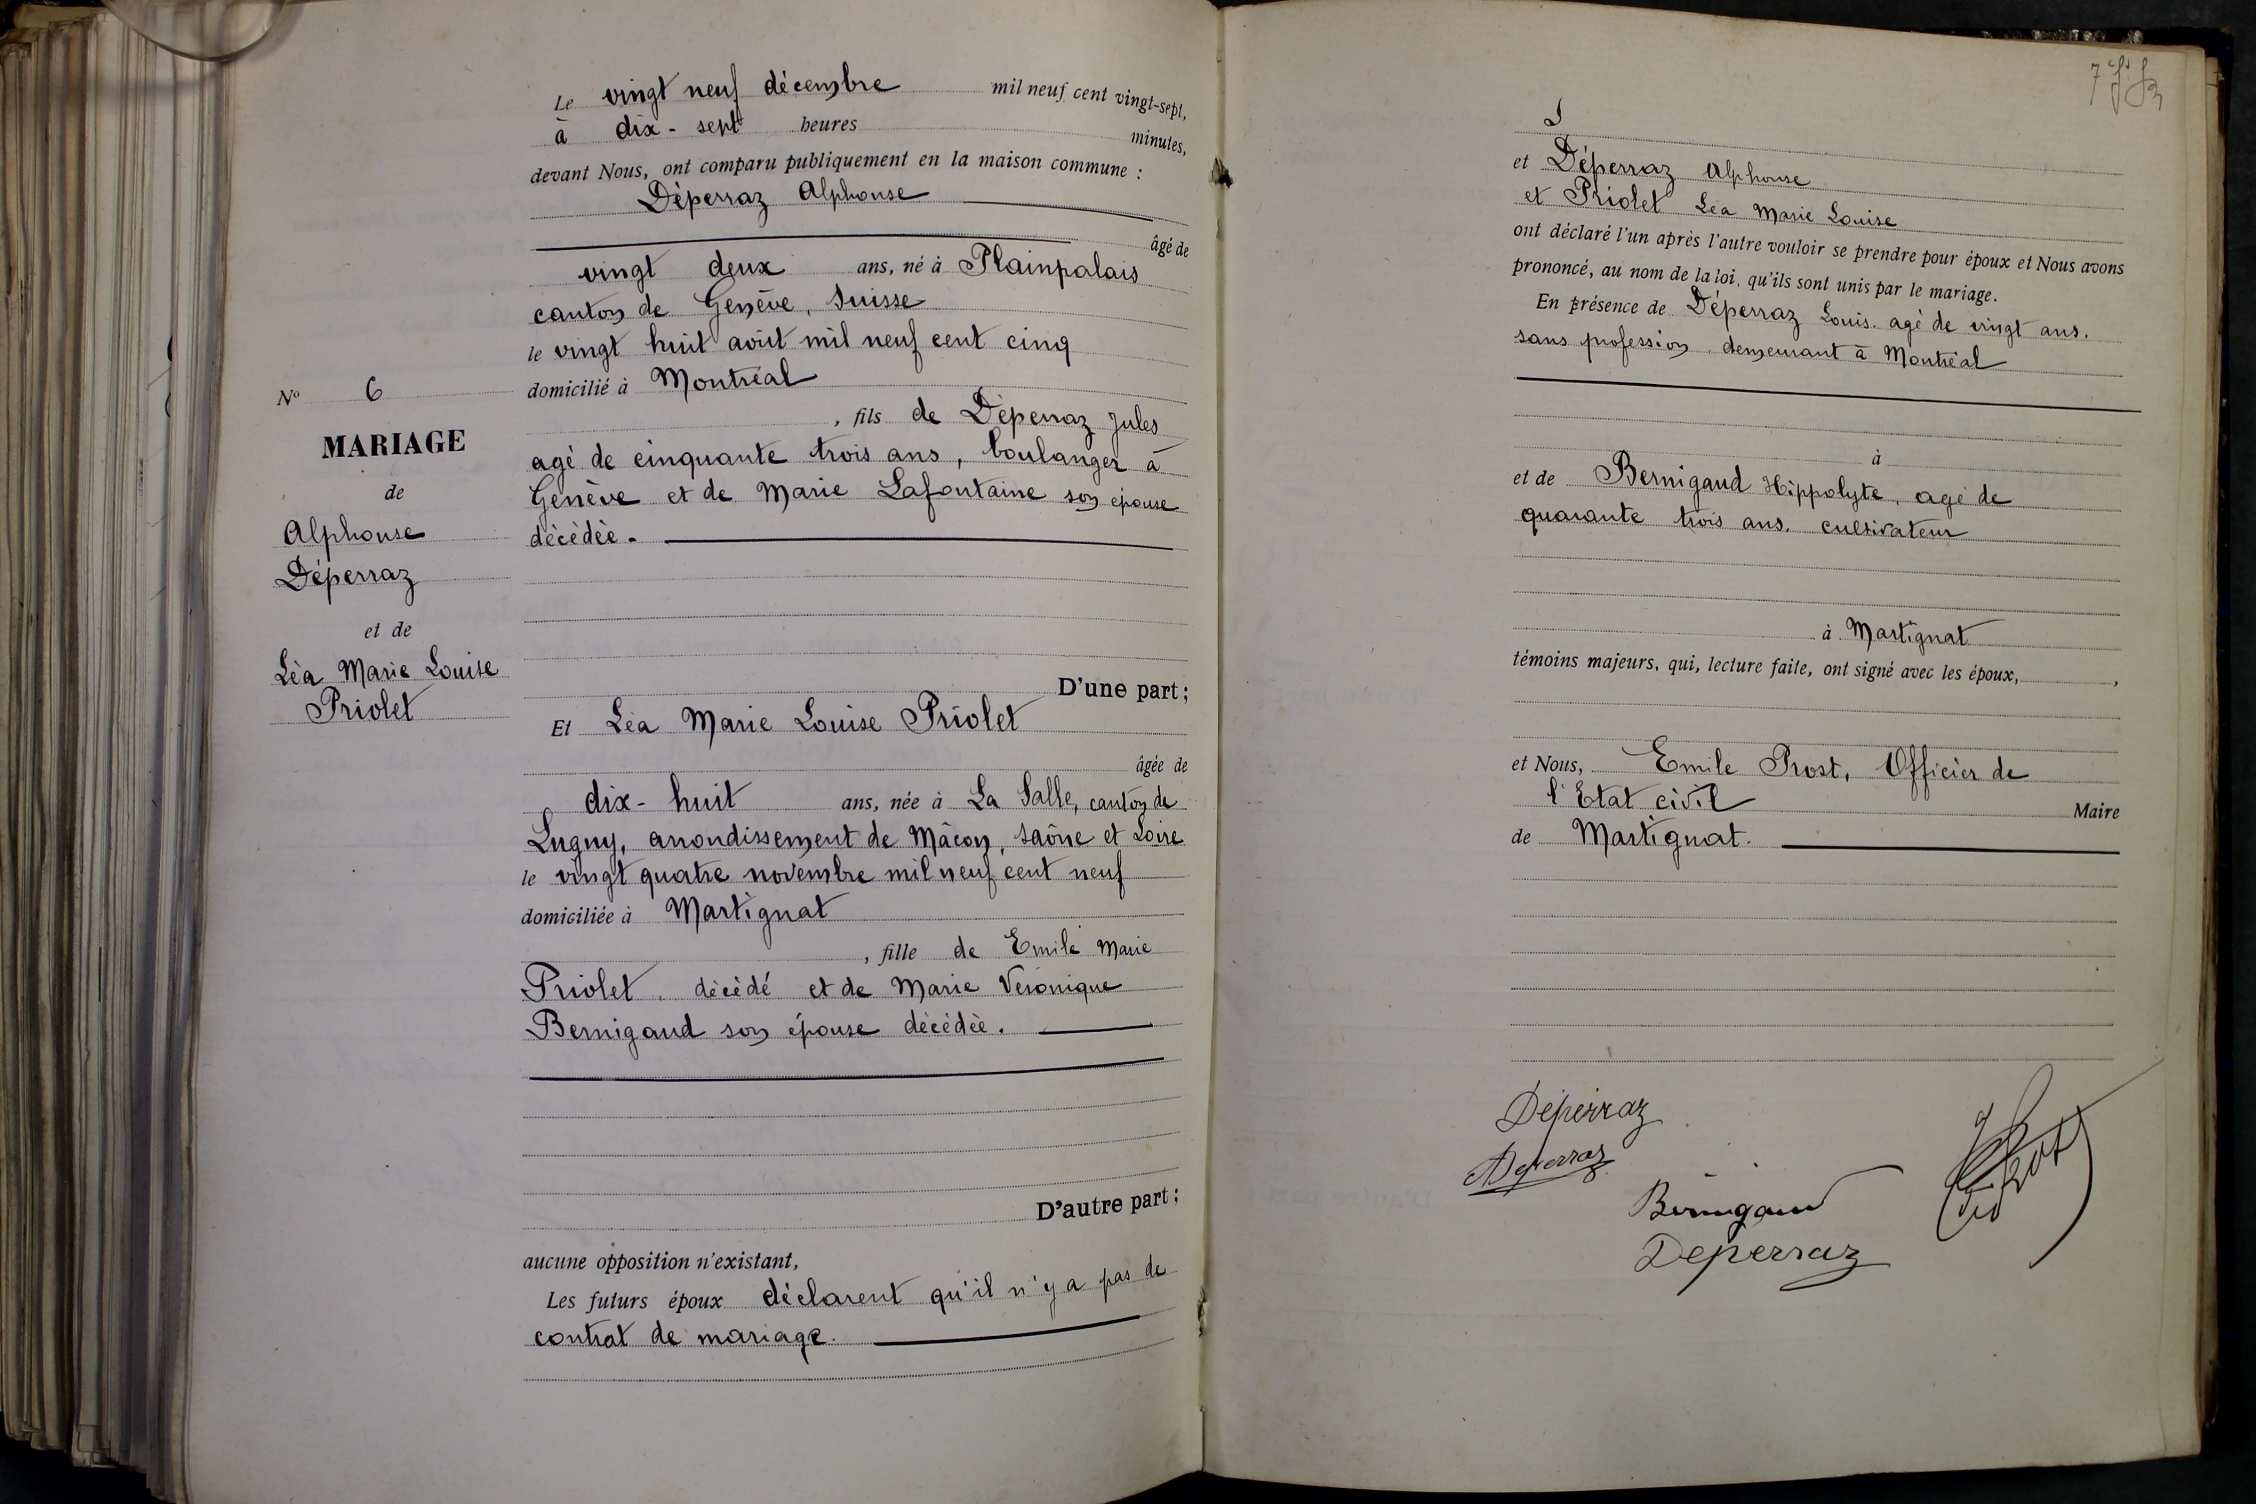 Le vingt neuf décembre mil neuf cent vingt-sept,
à dix-sept heures minutes,
devant Nous, ont comparu publiquement en la maison commune :
Déperraz Alphonse
âgé de
vingt deux ans, né à Plainpalais
canton de Genève, Suisse
le vingt huit août mil neuf cent cinq
domicilié à Montréal
, fils de Déperraz Jules
agé de cinquante trois ans, boulanger à
Genève et de Marie Lafontaine son épouse
décédée.
D'une part ;
Et Léa Marie Louise Priolet
âgée de
dix-huit ans, née à La Salle, canton de
Lugny, arrondissement de Mâcon, Saône et Loire
le vingt quatre novembre mil neuf cent neuf
domiciliée à Martignat
, fille de Emile Marie
Priolet, décédé et de Marie Véronique
Bernigaud son épouse décédée.
D'autre part ;
aucune opposition n'existant,
Les futurs époux déclarent qu'il n'y a pas de
contrat de mariage.
No 6
MARIAGE
de
Alphonse
Déperraz
et de
Léa Marie Louise
Priolet
et Déperraz Alphonse
et Priolet Léa Marie Louise
ont déclaré l'un après l'autre vouloir se prendre pour époux et Nous avons
prononcé, au nom de la loi, qu'ils sont unis par le mariage.
En présence de Déperraz Louis. agé de vingt ans.
sans profession demeurant à Montréal
à
et de Bernigaud Hippolyte, agé de
quarante trois ans. cultivateur
à Martignat
témoins majeurs, qui, lecture faite, ont signé avec les époux, ,
et Nous, Emile Prost, Officier de
l'Etat civil Maire
de Martignat.
Déperraz
Deperraz
Bernigaud
Deperraz